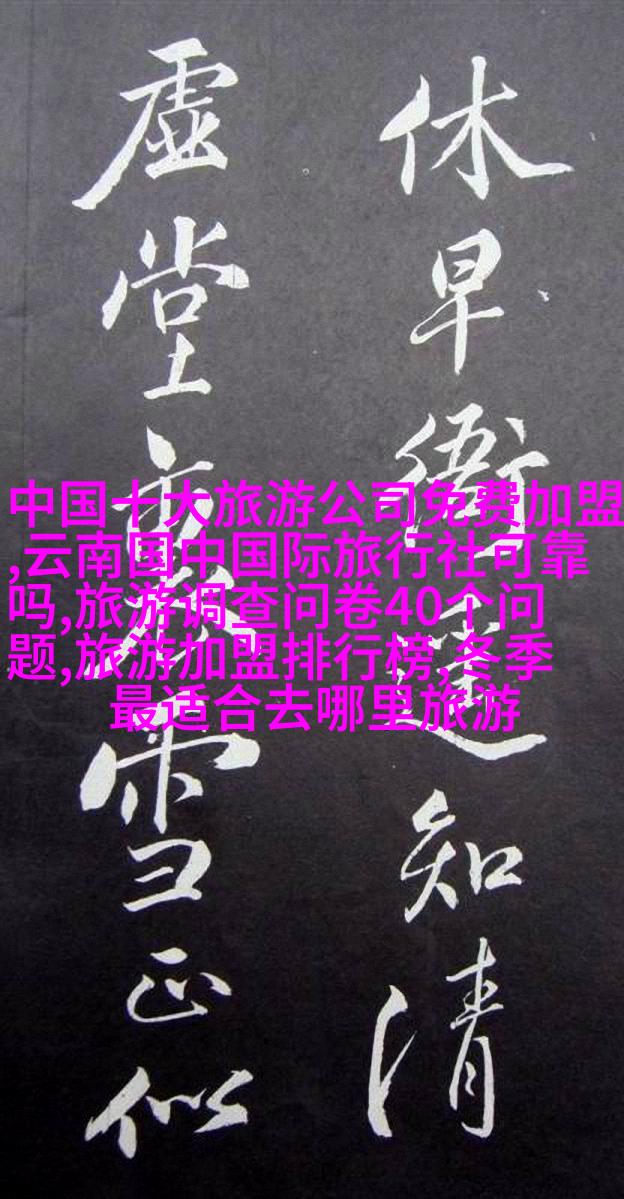 休早衙知清
虚堂雪正似
中国十大旅游公司免费加盟
,云南国中国际旅行社可靠
吗,旅游调查问卷40个问
题,旅游加盟排行榜,冬季
最适合去哪里旅游